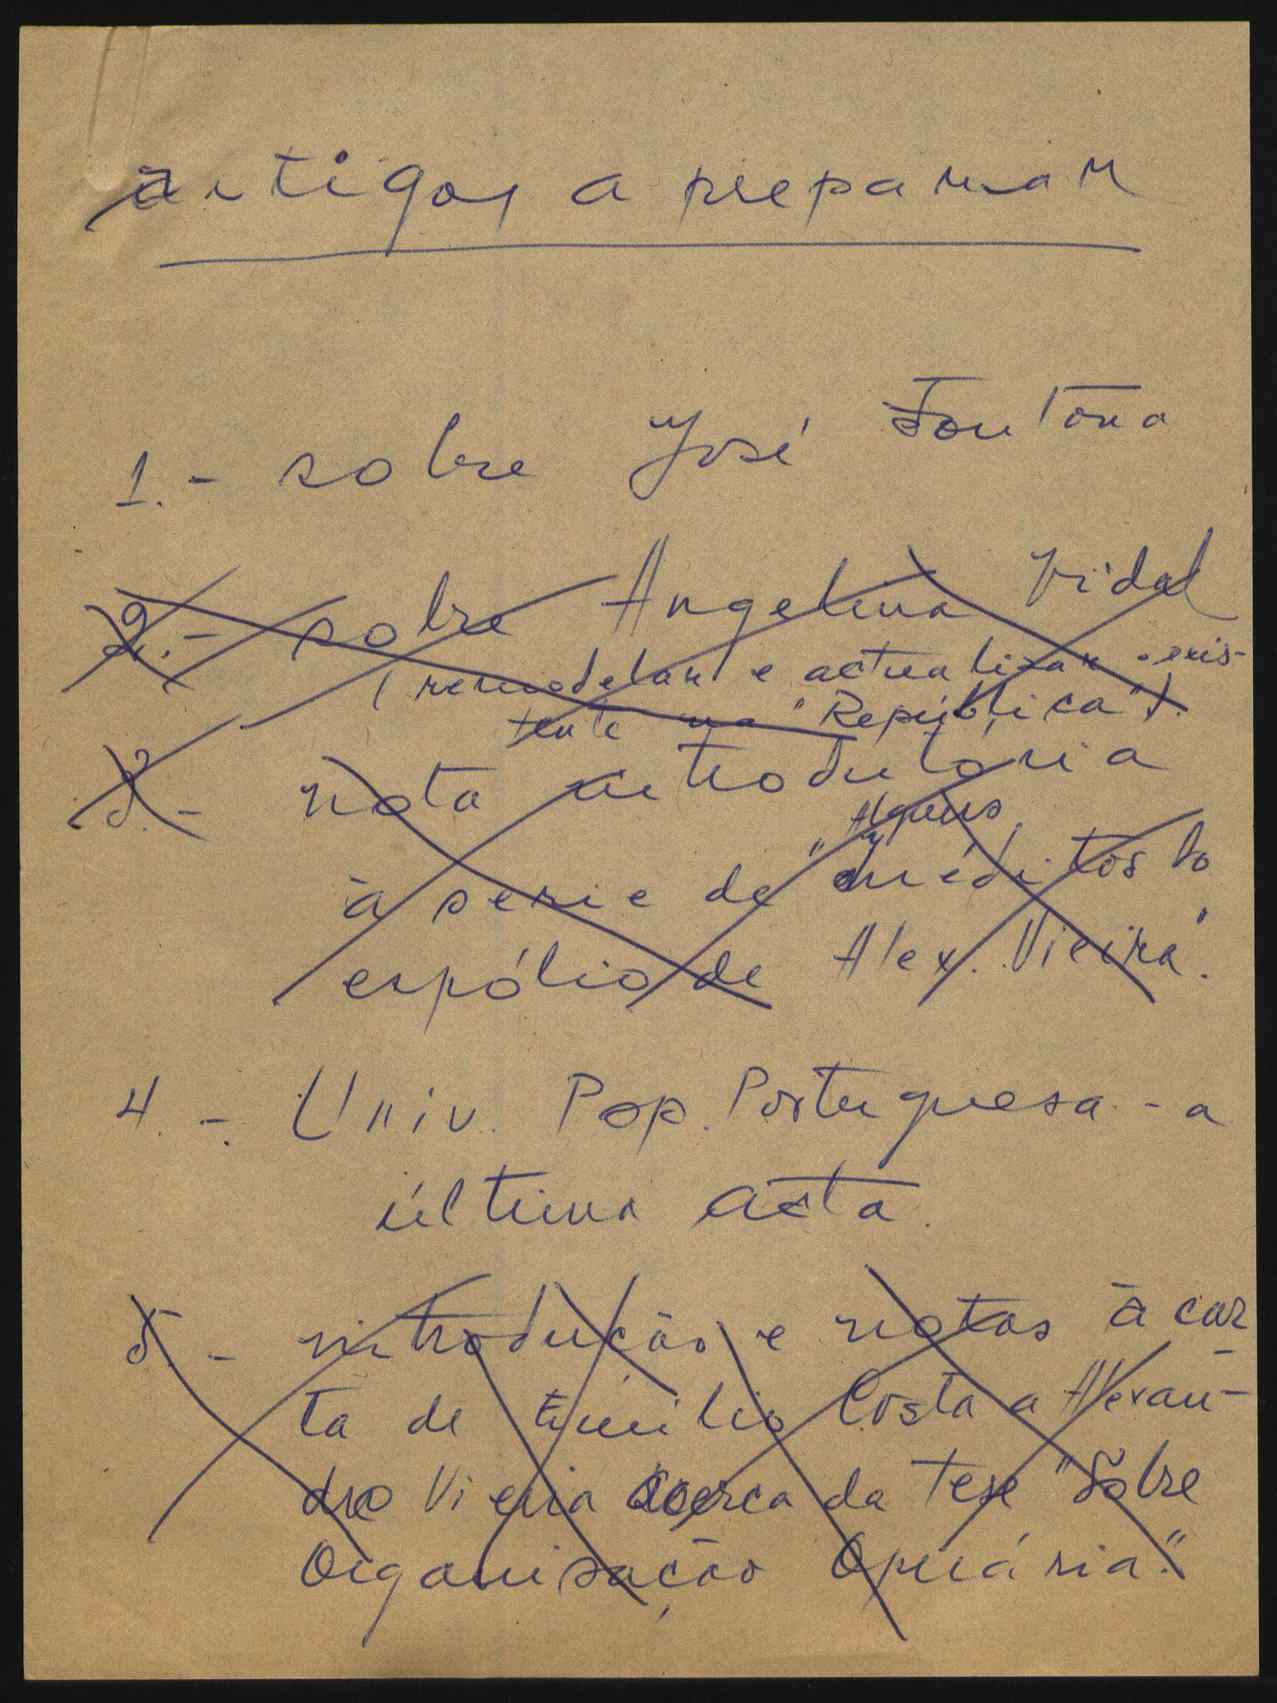 artigos a preparar
1. - sobre José Fontana
2. - sobre Angelina Vidal
(remodelar e actualizar o exis-
tente na "República").
3. - nota introdutória
à serie de "Alguns
inéditos do
espólio de Alex. Vieira".
4. - Univ. Pop. Portuguesa - a
última acta.
5. - introdução e notas à car
ta de Emílio Costa a Alexan-
dro Vieira acerca da tese "Sobre
Organização Operária".